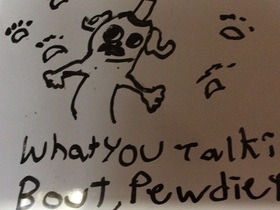 What YOU Talki
Bout, Pewdie